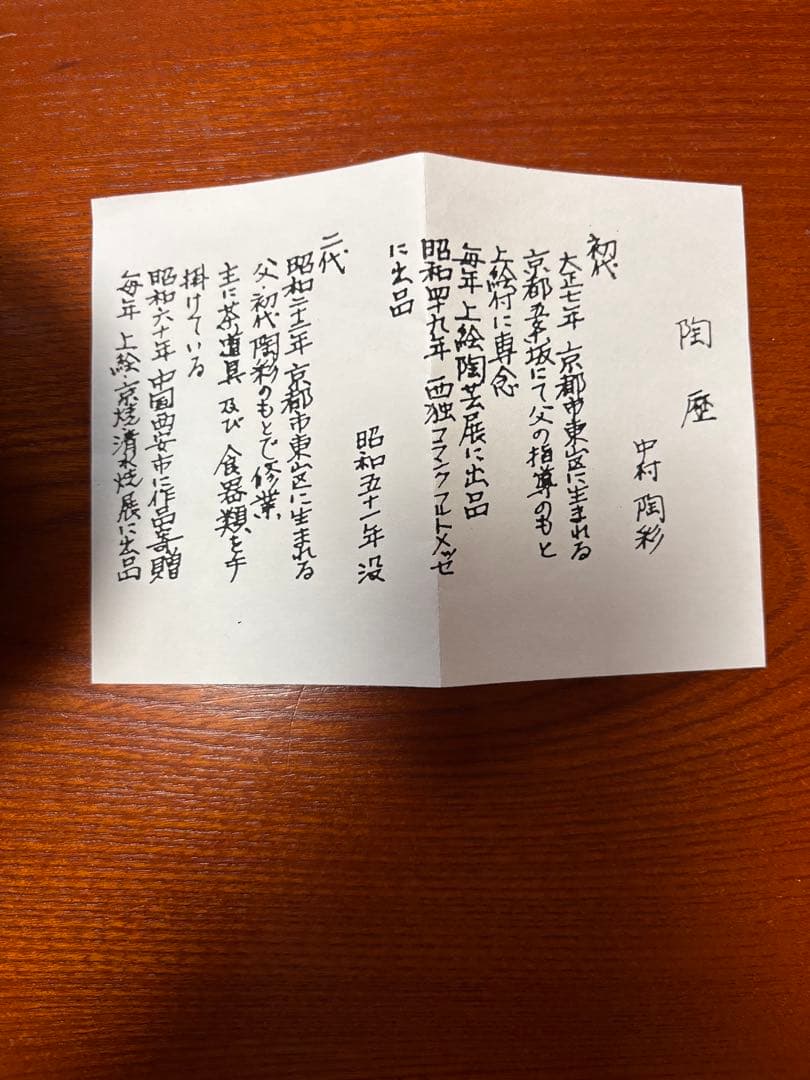 陶歴
中村陶彩
初代
大正七年 京都市東山区に生まれる
京都五条坂にて父の指導のもと
上絵付に専念
毎年 上絵陶芸展に出品
昭和四十九年 西独フランクフルトメッセ
に出品
昭和五十一年没
二代
昭和二十二年 京都市東山区に生まれる
父・初代陶彩のもとで修業
主に茶道具 及び 食器類を手
掛けている
昭和六十年 中国西安市に作品寄贈
毎年 上絵・京焼清水焼展に出品